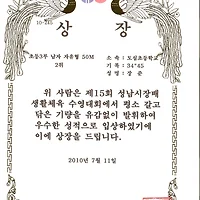 10-245
상 장
초등3부 남자 자유형 50M
2위
소 속 : 도심초등학교
기 록 : 34"45
성 명 : 장 준
위 사람은 제15회 성남시장배
생활체육 수영대회에서 평소 갈고
닦은 기량을 유감없이 발휘하여
우수한 성적으로 입상하였기에
이에 상장을 드립니다.
2010년 7월 11일